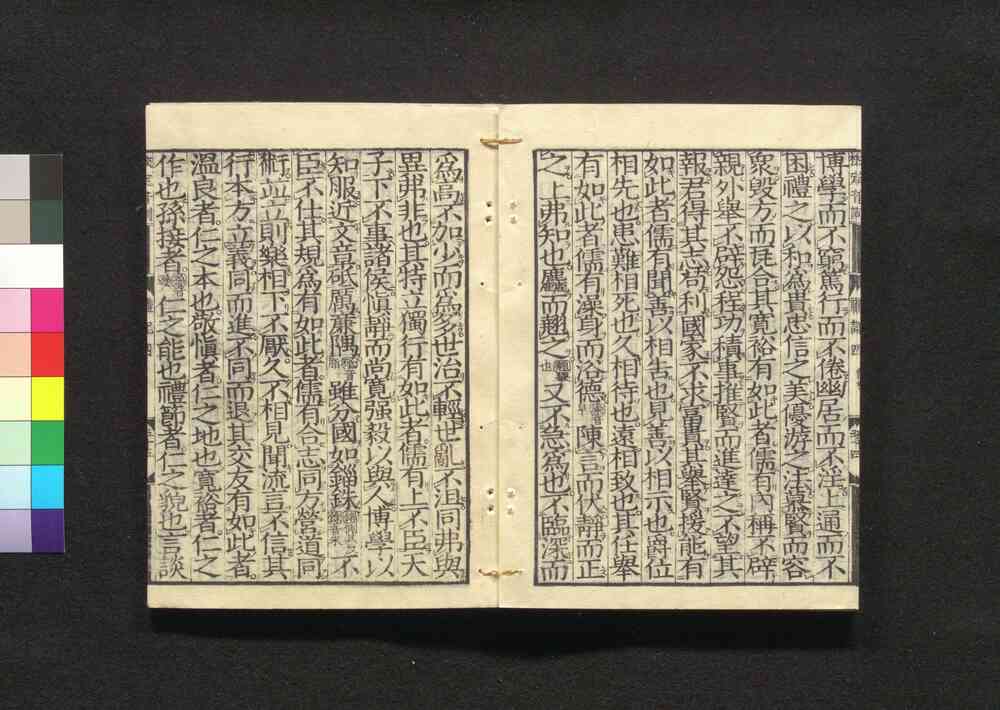 博學而不窮篤行而不倦幽居而不淫上通而不
困禮之以和爲貴忠信之美優游之法慕賢而容
衆毀方而瓦合其寛裕有如此者儒有內稱不辟
親外舉不辟怨程功積事推賢而進達之不望其
報君得其志苟利國家不求富貴其舉賢援能有
如此者儒有聞善以相告也見善以相示也爵位
相先也患難相死也久相待也遠相致也其任舉
有如此者儒有澡身而浴德陳言而伏靜而正
之上弗知也麤而翹之又不急爲也不臨深而
爲高不加少而爲多世治不輕世亂不沮同弗與
異弗非也其特立獨行有如此者儒有上不臣天
子下不事諸侯愼靜而尚寛强毅以與人博學以
知服近文章砥厲廉隅雖分國如錙銖不
臣不仕其規爲有如此者儒有合志同方營道同
術並立則樂相下不厭久不相見聞流言不信其
行本方立義同而進不同而退其交友有如此者
溫良者仁之本也敬愼者仁之地也寛裕者仁之
作也孫接者仁之能也禮節者仁之貌也言談